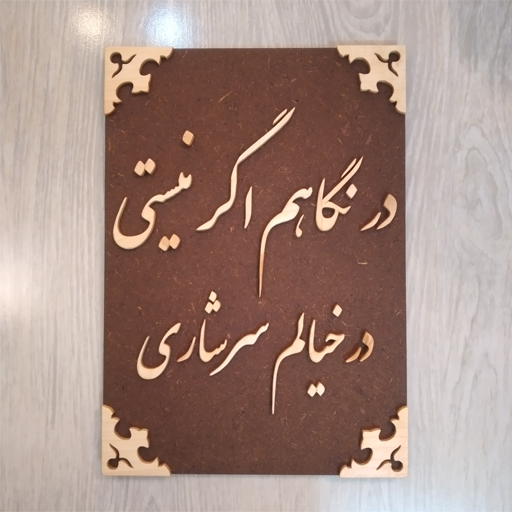 در نگاهم اگر نیستی
در خیالم سرشاری